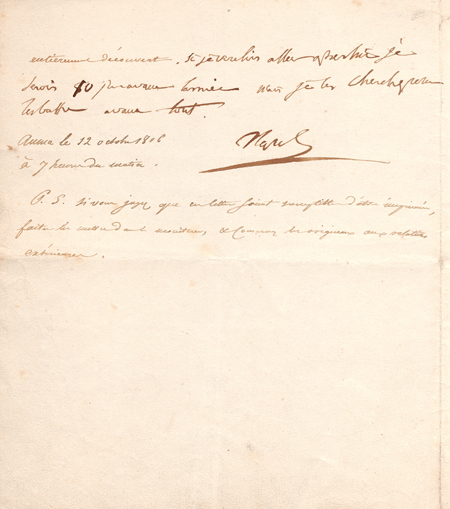 entièrement découvert. Si je voulois aller à Berlin je
serois 10 jrs avant l'armée mais je les cherche pour
les battre avant tout.
Auma le 12 octobr 1806
à 7 heures du matin.
Napol
P.S. si vous jugez que ces lettres soient susceptibles d'être imprimées,
faites les mettre dans le moniteur,